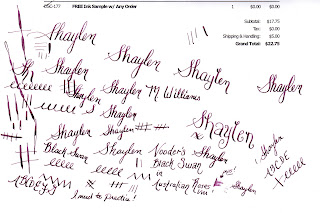 OSC-177 FREE Ink Sample w/ Any Order 1 $0.00 $0.00
Subtotal: $17.75
Tax: $0.00
Shipping & Handling: $5.00
Grand Total: $22.75
Shaylen
Shaylen Shaylen
Shaylen Shaylen Shaylen Shaylen
Shaylen Shaylen M Williams
Shaylen Shaylen
Shaylen
Shaylen Shaylen
Black Swan Shaylen Nooder's Shaylen
Black Swan
in
Australian Roses
Shaylen
Shaylen
ABCDE
I need to practice!